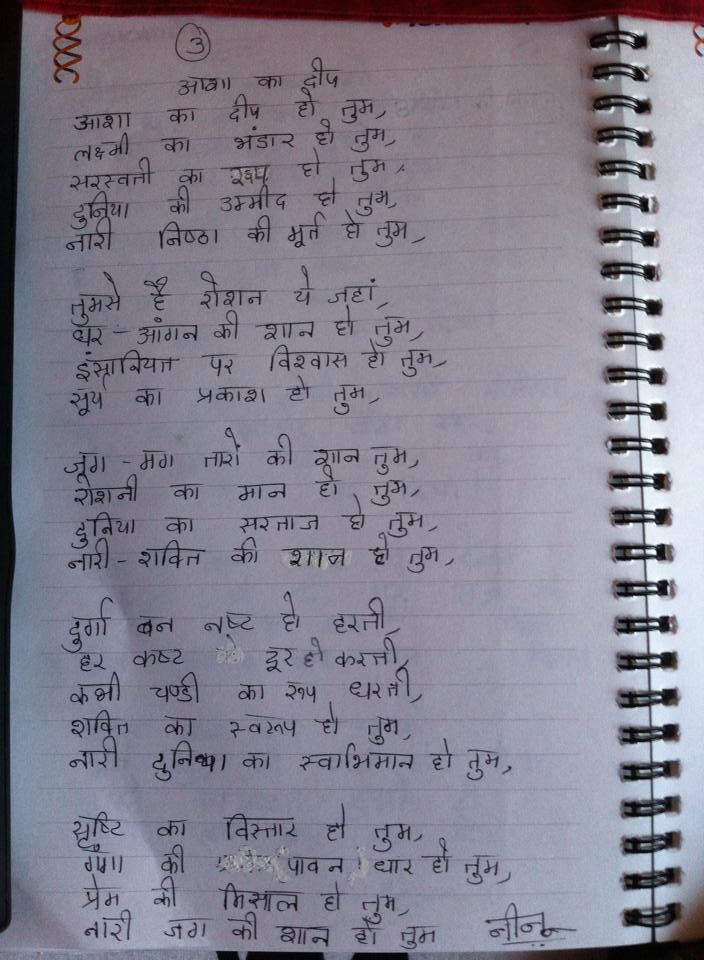 3
आशा का दीप
आशा का दीप हो तुम,
लक्ष्मी का भंडार हो तुम,
सरस्वती का रूप हो तुम,
दुनिया की उम्मीद हो तुम,
नारी निष्ठा की मूर्त हो तुम,
तुमसे है रोशन ये जहां,
घर-आंगन की शान हो तुम,
इंसानियत पर विश्वास हो तुम,
सूर्य का प्रकाश हो तुम,
जग-मग तारों की शान तुम,
रोशनी का मान हो तुम,
दुनिया का सरताज हो तुम,
नारी-शक्ति की शान हो तुम,
दुर्गा बन नष्ट हो हरती,
हर कष्ट दूर हो करती,
कभी चण्डी का रूप धरती,
शक्ति का स्वरूप हो तुम,
नारी दुनिया का स्वाभिमान हो तुम,
सृष्टि का विस्तार हो तुम,
गंगा की पावन धार हो तुम,
प्रेम की मिसाल हो तुम,
नारी जग की शान हो तुम नीनू